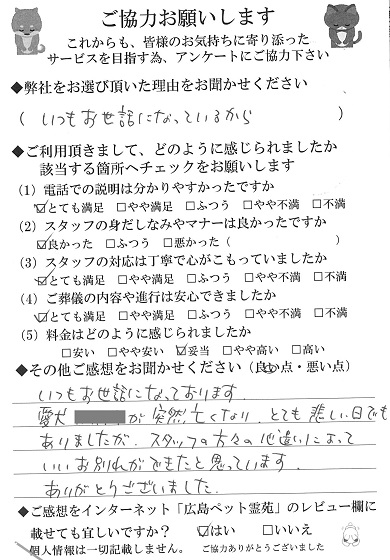 ご協力お願いします
これからも、皆様のお気持ちに寄り添った
サービスを目指す為、アンケートにご協力下さい
◆弊社をお選び頂いた理由をお聞かせください
（いつもお世話になっているから）
◆ご利用頂きまして、どのように感じられましたか
該当する箇所へチェックをお願いします
（1）電話での説明は分かりやすかったですか
☑とても満足 □やや満足 □ふつう □やや不満 □不満
（2）スタッフの身だしなみやマナーは良かったですか
☑良かった □ふつう □悪かった（ ）
（3）スタッフの対応は丁寧で心がこもっていましたか
☑とても満足 □やや満足 □ふつう □やや不満 □不満
（4）ご葬儀の内容や進行は安心できましたか
☑とても満足 □やや満足 □ふつう □やや不満 □不満
（5）料金はどのように感じられましたか
□安い □やや安い ☑妥当 □やや高い □高い
◆その他ご感想をお聞かせください（良い点・悪い点）
いつもお世話になっております。
愛犬 が突然亡くなり、とても悲しい日でも
ありましたが、スタッフの方々の心遣いによって
いいお別れができたと思っています。
ありがとうございました。
◆ご感想をインターネット「広島ペット霊苑」のレビュー欄に
載せても宜しいですか？ ☑はい □いいえ
個人情報は一切記載しません。 ご協力ありがとうございました